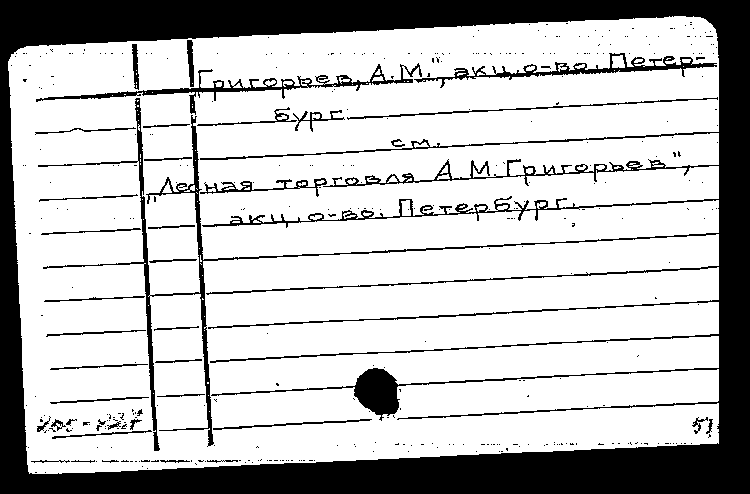 „Григорьев, А.М.", акц. о-во. Петер-
бург.
см.
„Лесная торговля А.М. Григорьев",
акц. о-во. Петербург.
51